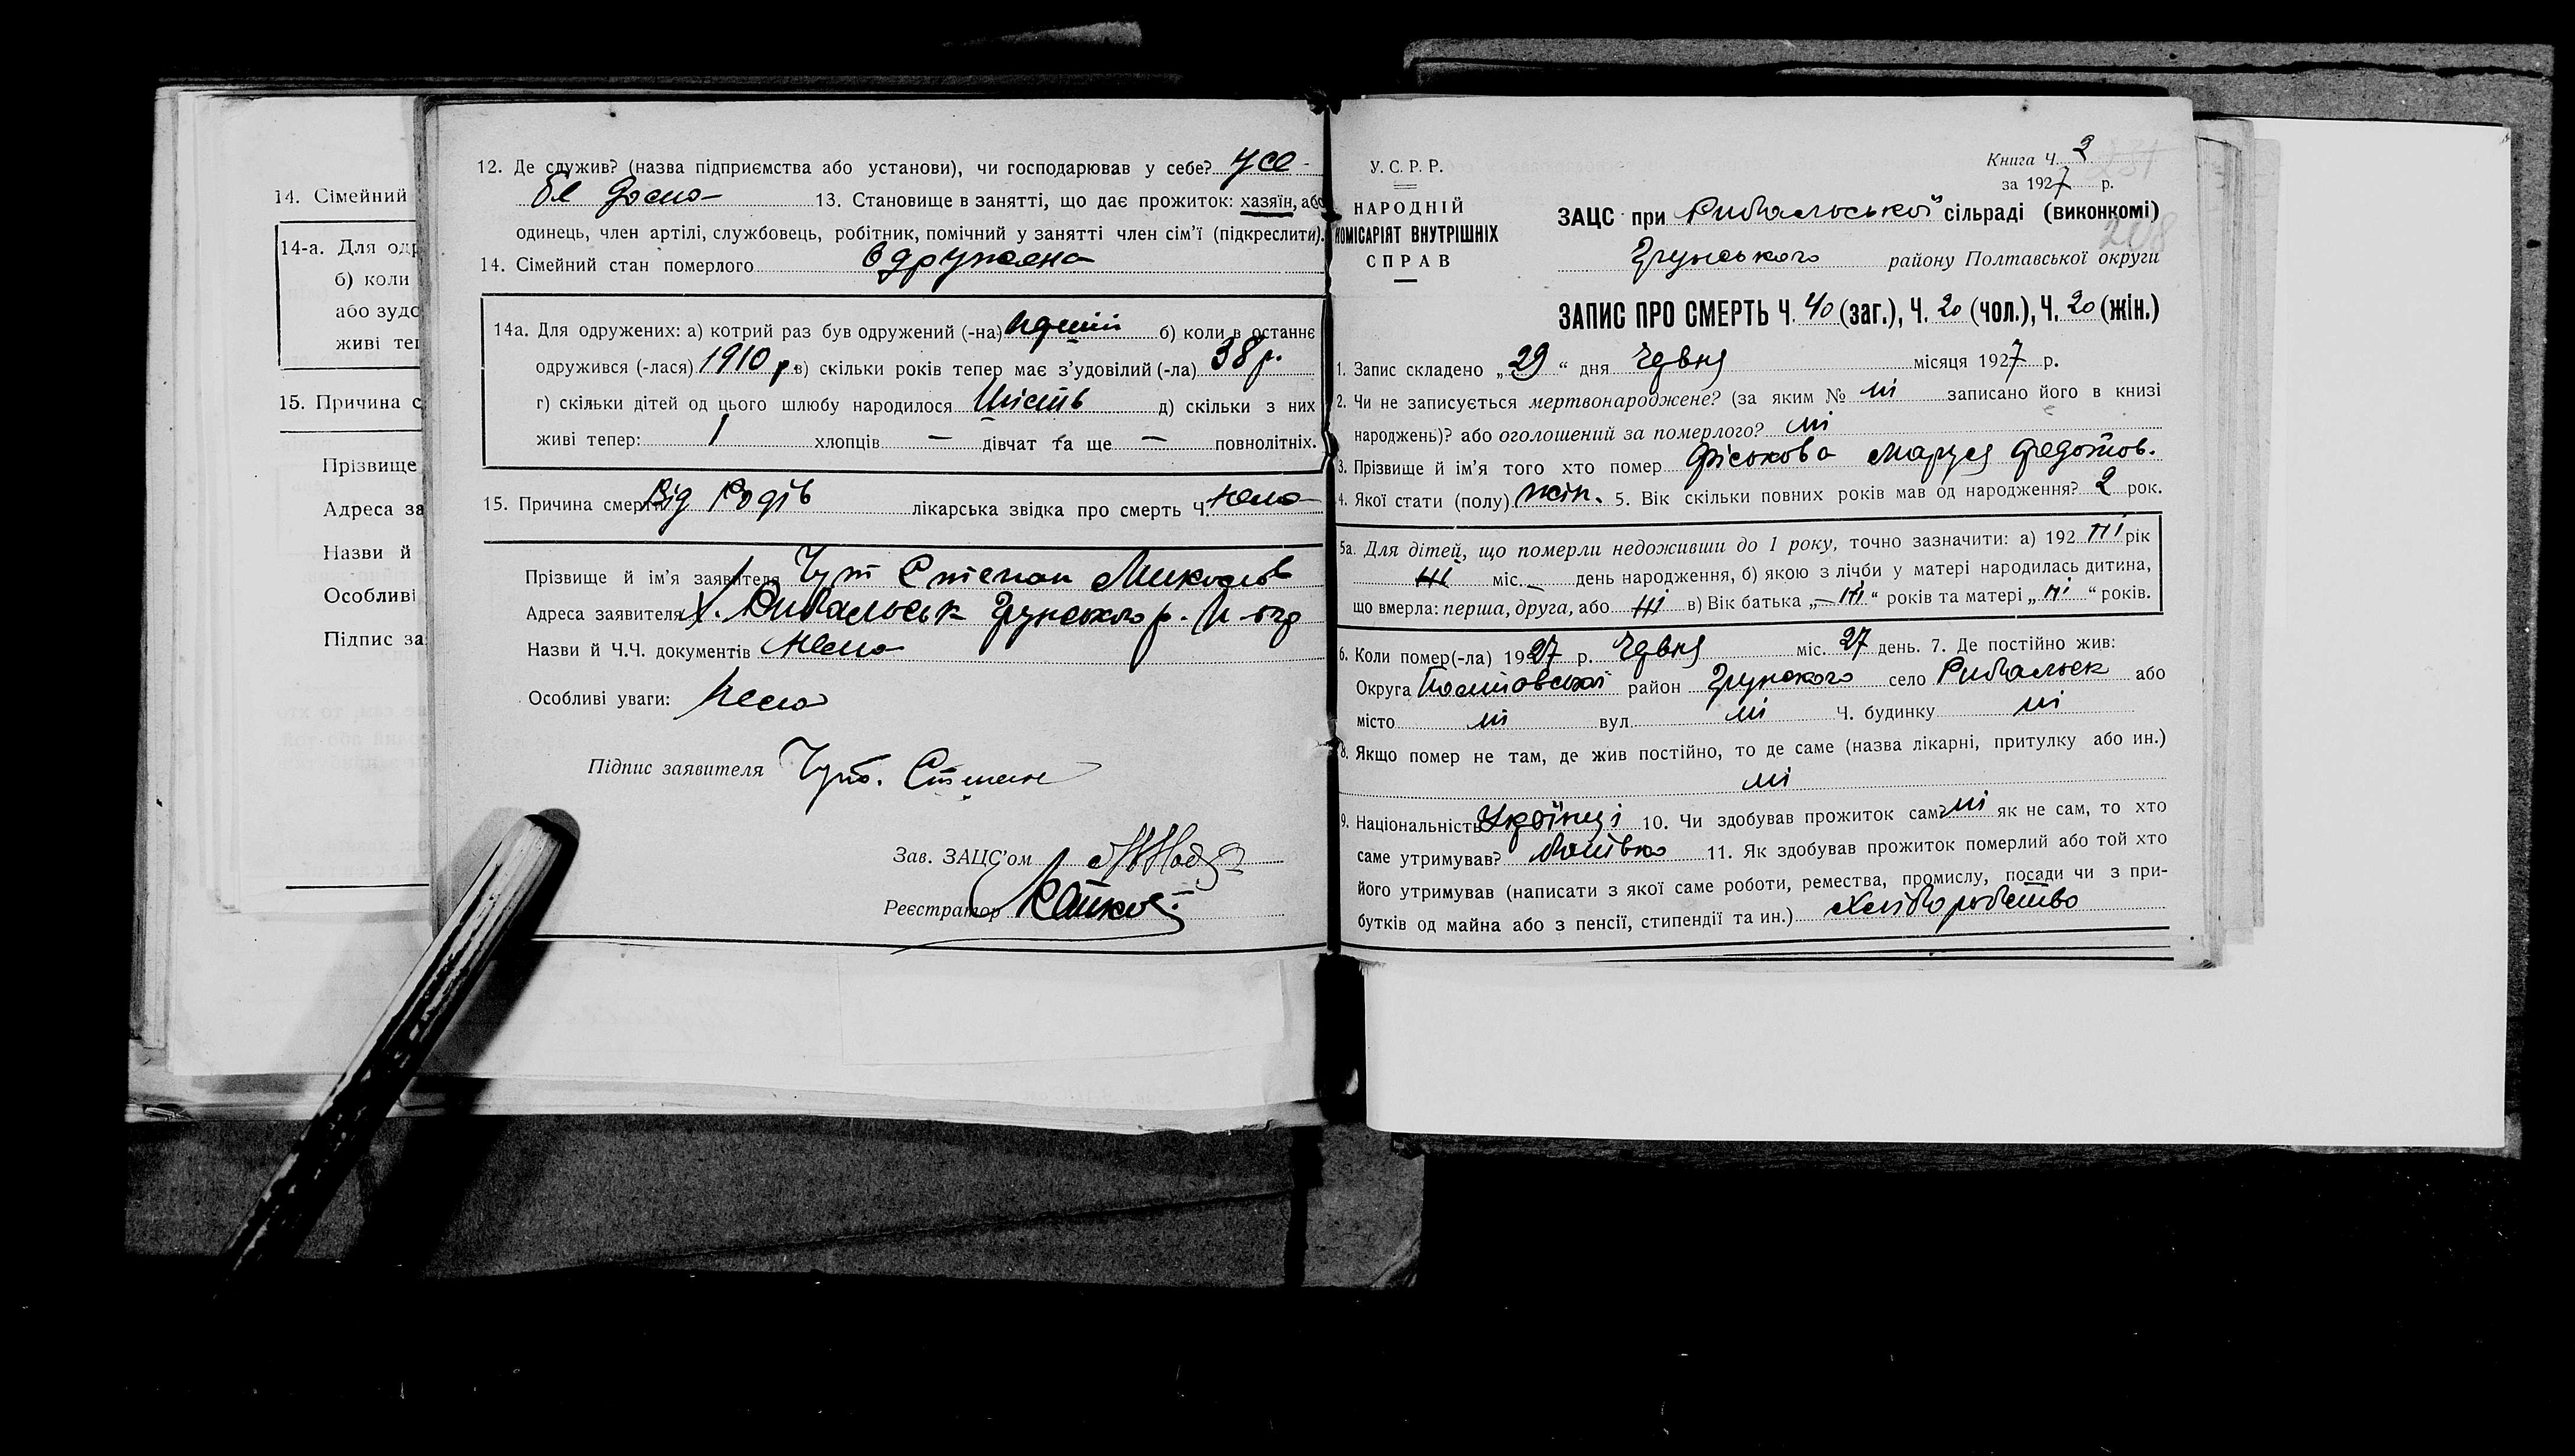 14. Сімейний
14-а. Для одр
б) коли
або зудо
живі теп
15. Причина с
Прізвище
Адреса за
Назви й
Особливі
Підпис за
12. Де служив? (назва підприємства або установи), чи господарював у себе? У се-
бе дома 13. Становище в занятті, що дає прожиток: хазяїн, або
одинець, член артілі, службовець, робітник, помічний у занятті член сім'ї (підкреслити).
14. Сімейний стан померлого Одружена
14а. Для одружених: а) котрий раз був одружений (-на) б) коли в останнє
одружився (-лася) 1910 р. в) скільки років тепер має з'удовілий (-ла) 38 р.
г) скільки дітей од цього шлюбу народилося Шість д) скільки з них
живі тепер: 1 хлопців — дівчат та ще — повнолітніх.
15. Причина смерти Від родів лікарська звідка про смерть Ч. нема
Прізвище й ім'я заявителя Чут Степан Миколов
Адреса заявителя х. Рибальськ Грунського р. П-окр
Назви й Ч.Ч. документів Нема
Особливі уваги: Нема
Підпис заявителя Чуб. Степан
Зав. ЗАЦС'ом
Реєстратор
У. С. Р. Р.
НАРОДНІЙ
КОМІСАРІЯТ ВНУТРІШНІХ
СПРАВ
Книга Ч. 2
за 1927 р.
ЗАЦС при Рибальської сільраді (виконкомі)
208
Грунського району Полтавської округи
ЗАПИС ПРО СМЕРТЬ Ч. 40 (заг.), Ч. 20 (чол.), Ч. 20 (жін.)
1. Запис складено „29" дня Червня місяця 1927 р.
2. Чи не записується мертвонароджене? (за яким № ні записано його в книзі
народжень)? або оголошений за померлого? ні
3. Прізвище й ім'я того хто помер Фіськова Маруся Федотов.
4. Якої стати (полу) жін. 5. Вік скільки повних років мав од народження? 2 рок.
5а. Для дітей, що померли недоживши до 1 року, точно зазначити: а) 192 ні рік
ні міс. — день народження, б) якою з лічби у матері народилась дитина,
що вмерла: перша, друга, або ні в) Вік батька „—ні" років та матері „ні" років.
6. Коли помер(-ла) 1927 р. Червня міс. 27 день. 7. Де постійно жив:
Округа Полтавської район Грунського село Рибальськ або
місто ні вул. ні Ч. будинку ні
8. Якщо помер не там, де жив постійно, то де саме (назва лікарні, притулку або ин.)
ні
9. Національність Українці 10. Чи здобував прожиток сам? ні як не сам, то хто
саме утримував? батько 11. Як здобував прожиток померлий або той хто
його утримував (написати з якої саме роботи, ремества, промислу, посади чи з при-
бутків од майна або з пенсії, стипендії та ин.) Хліборобство